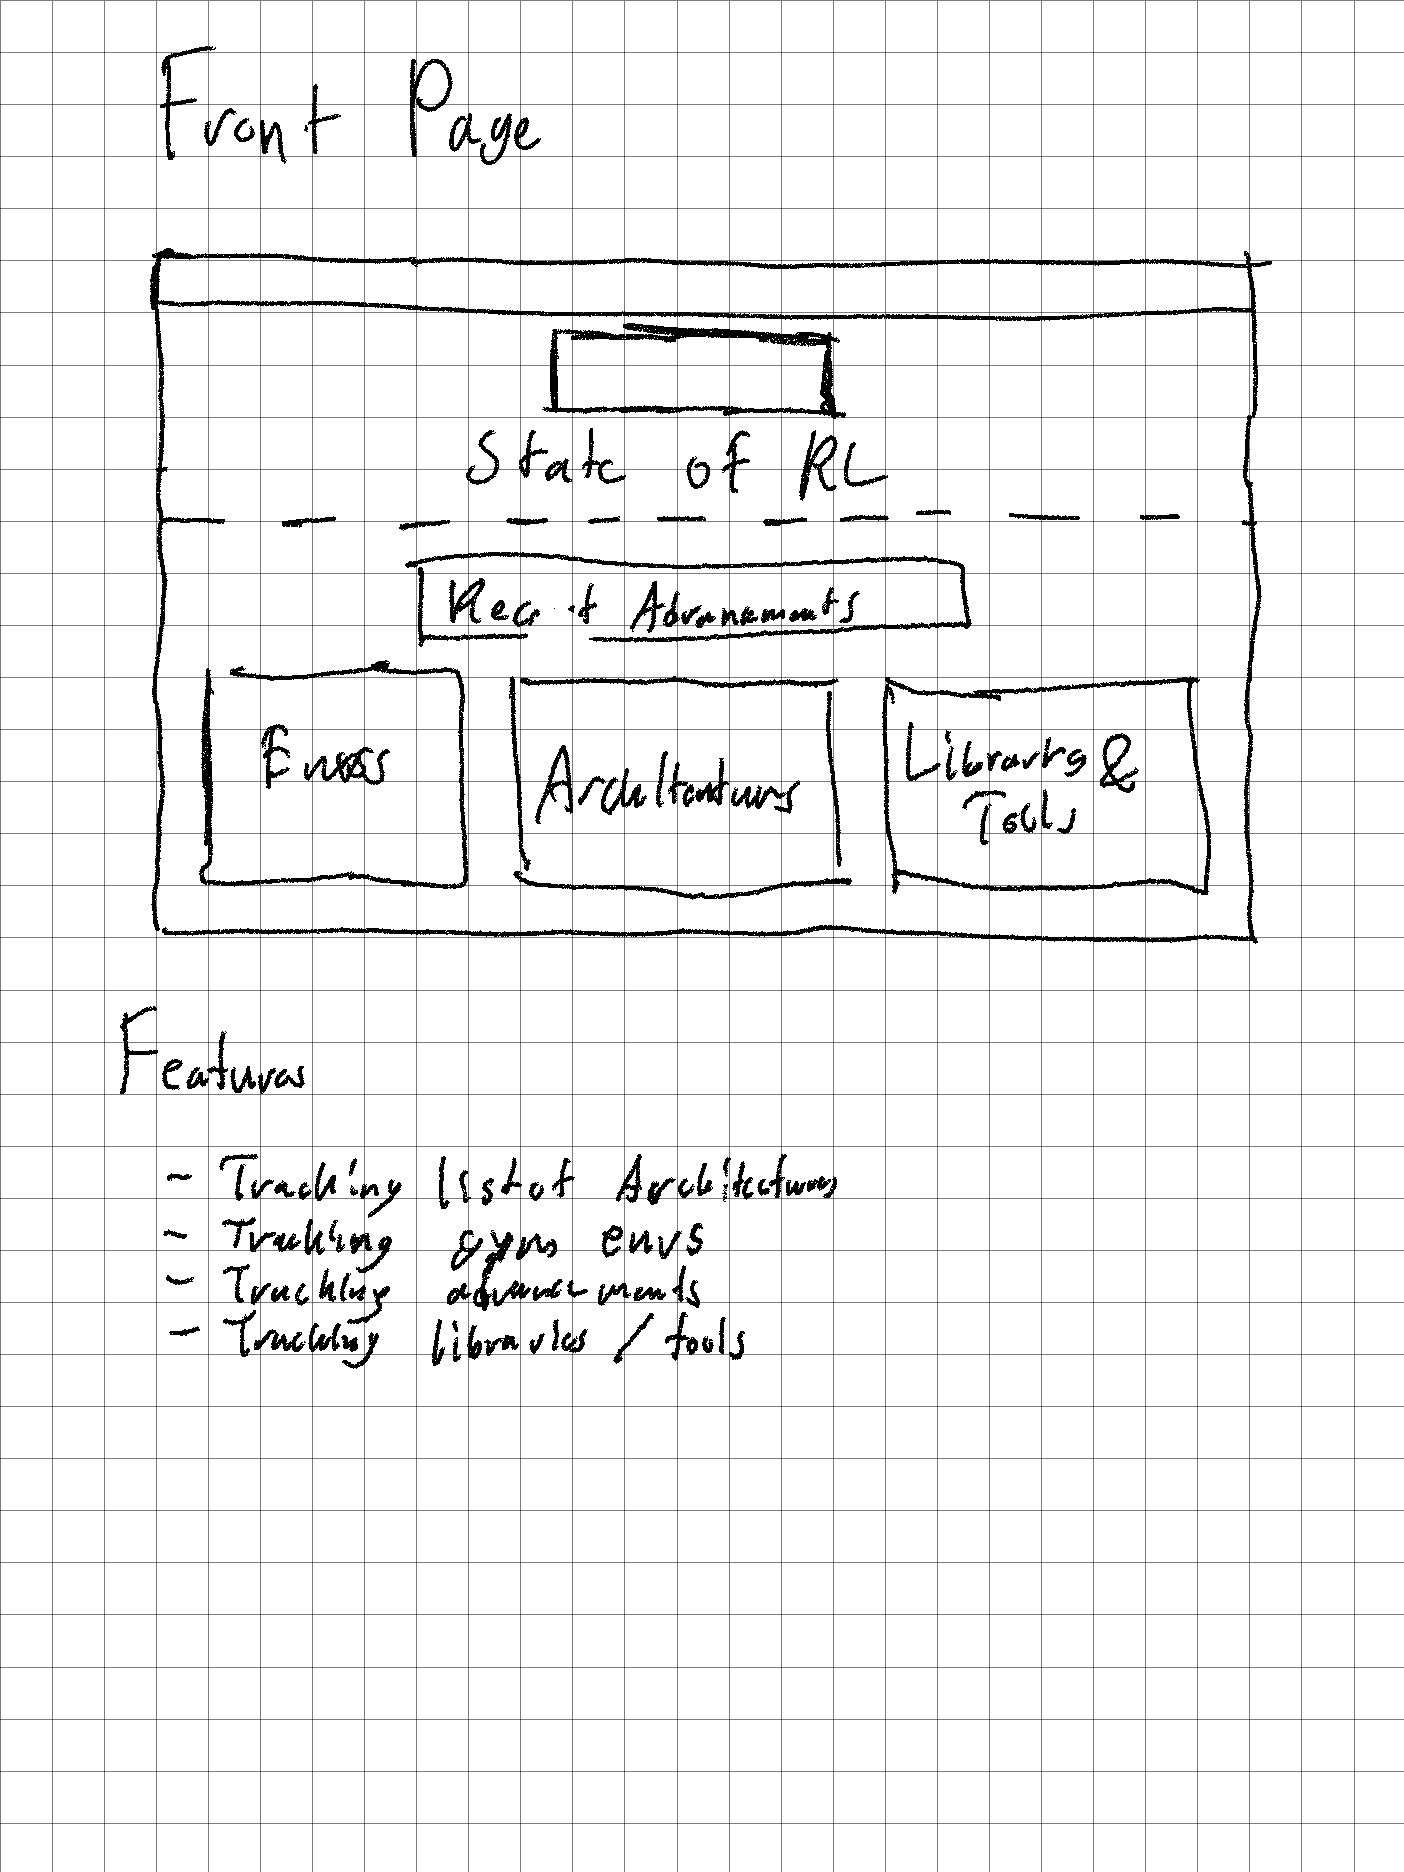 Front Page
State of RL
Recent Advancements
Envs
Architectures
Libraries &
Tools
Features
- Tracking list of Architectures
- Tracking gym envs
- Tracking advancements
- Tracking libraries / tools